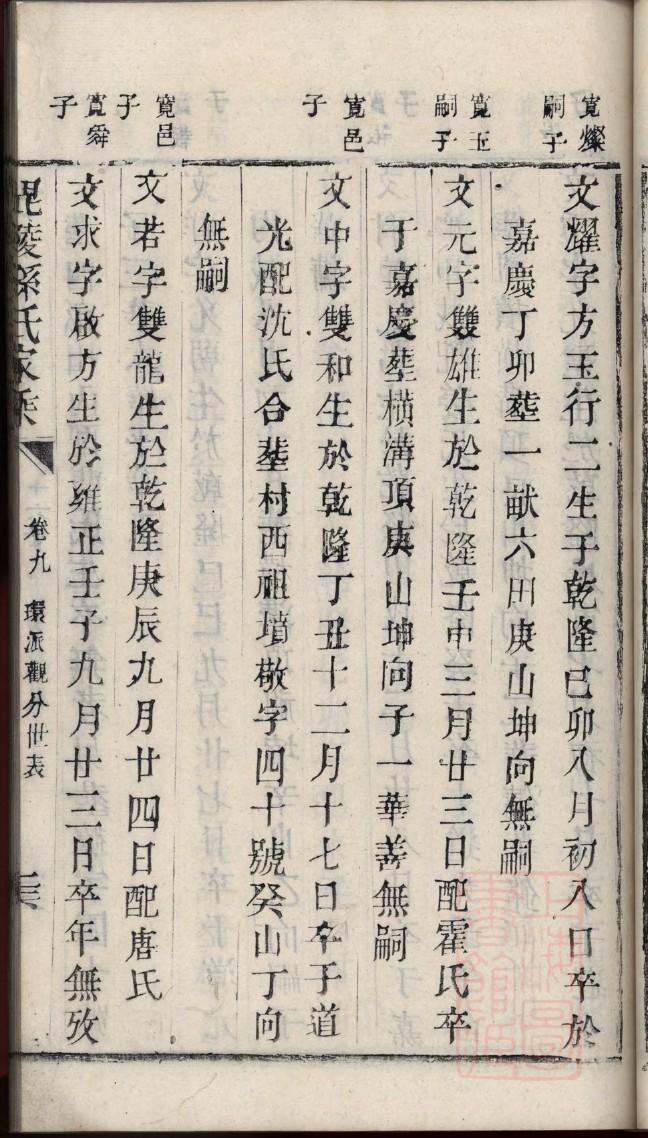 寬燦
嗣子
文耀字方玉行二生于乾隆己卯八月初八日卒於
嘉慶丁卯塟一畝六田庚山坤向無嗣
寬玉
嗣子
文元字雙雄生於乾隆壬申三月廿三日配霍氏卒
于嘉慶塟橫溝頂庚山坤向子一華善無嗣
寬邑
子
文中字雙和生於乾隆丁丑十二月十七日卒于道
光配沈氏合塟村西祖墳敬字四十號癸山丁向
無嗣
寬邑
子
文若字雙龍生於乾隆庚辰九月廿四日配唐氏
寬舜
子
文求字啟方生於雍正壬子九月廿三日卒年無攷
毘陵孫氏家乘
卷九 環派觀分世表